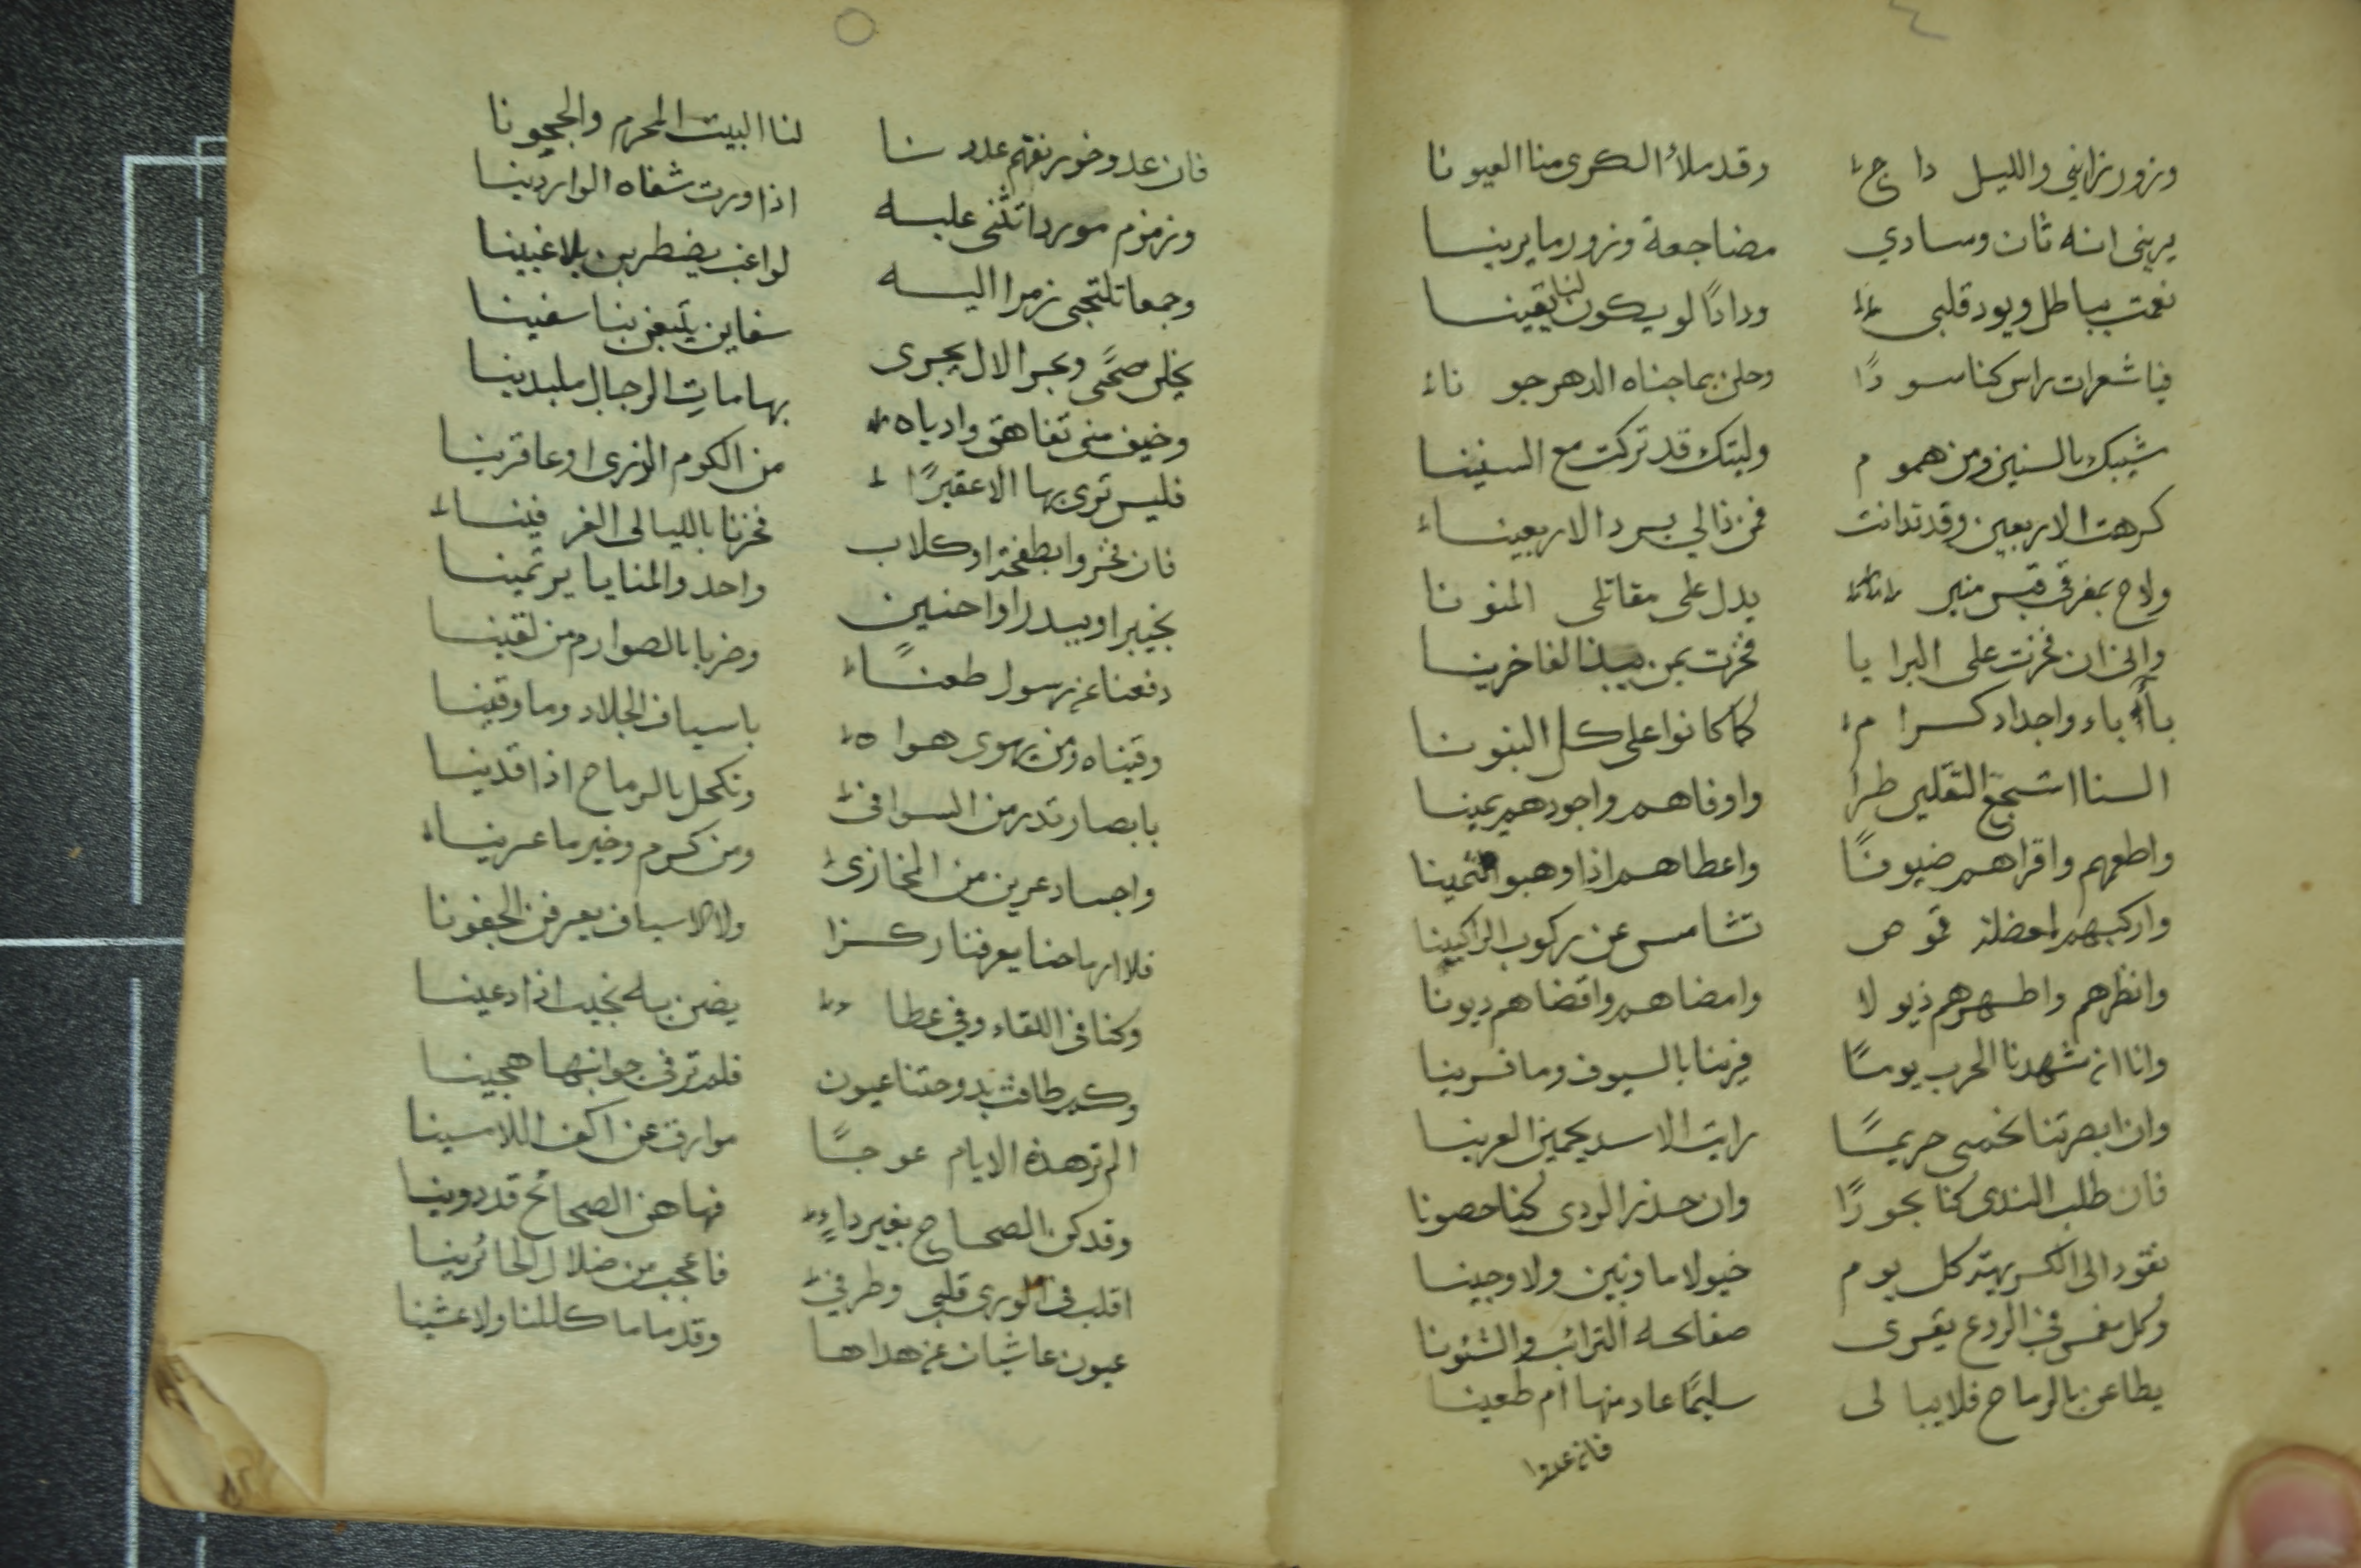 ٤
وزور زارني والليل داج وقد ملأ الكرى منا العيونا
يريني انه ثان وسادي مضاجعة وزور ما يرينا
نعمت بباطل ويود قلبي ودادًا لو يكون لنا يقينا
فيا شعرات راس كنا سودًا وحلن بما جناه الدهر جونا
شيبك بالسنين ومن هموم وليتك قد تركت مع السنينا
كرهت الاربعين وقد تدانت فمن ذا لي برد الاربعينا
ولاح بمفرقي قبس منير يدل على مقاتلي المنونا
واني ان فخرت على البرايا فخرت بمن يبذ الفاخرينا
بأباء واجداد كرام كما كانوا على كل البنونا
السنا اشجع الثقلين طرا واوفاهم واجودهم يمينا
واطعمهم واقراهم ضيوفًا واعطاهم اذا وهبوا الثمينا
واركبهم لمعضلة قموص تشامس عن ركوب الراكبينا
وانظرهم واطهرهم ذيولا وامضاهم واقضاهم ديونا
وانا ان شهدنا الحرب يومًا فرينا بالسيوف وما فرينا
وان ابصرتنا نحمى حريمًا رايت الاسد يحمين العرينا
فان طلب الندى كنا بحورًا وان حذر الردى كنا حصونا
نقود الى الكريهة كل يوم خيولا ما ونين ولا وجينا
وكل مغمس في الروع يقرى صفائحه الترائب والشئونا
يطاعن بالرماح فلا يبالى سليمًا عاد منها ام طعينا
فان عدوا
٥
فان عد وخورنقهم عددنا لنا البيت المحرم والحجونا
وزمزم موردا تثنى عليه اذا وردت شفاه الواردينا
وجمعا تلتجي زمرا اليه لواغب يضطربن بلاغبينا
يخلن ضحًى وبحر الال يجرى سفاين يتبعن بنا سفينا
وخيف منى تفاهق وادياه بهامات الرجال ملبدينا
فليس ترى بها الا عقيرًا من الكوم الذرى او عاقرينا
فان فخروا بطخفة او كلاب فخرنا بالليالى الغر فينا
بخيبر او ببدر او احنين واحد والمنايا يرتمينا
دفعنا عن رسول طعنًا وضربا بالصوارم من لقينا
وقيناه ومن يهوى هواه باسياف الجلاد وما وقينا
بابصار تذر من السوافى ونكحل بالرماح اذا قذينا
واجساد عرين من المخازى ومن كرم وخير ما عرينا
فلا ارماحنا يعرفنا ركزا ولا الاسياف يعرفن الجفونا
وكنا في اللقاء وفي عطا يضن به نجيب اذا دعينا
وكم طافت بدوحتنا عيون فلم تر في جوانبها هجينا
الم تر هذه الايام عوجًا موارق عن اكف اللامسينا
وقد كن الصحاح بغير داء فها هن الصحائح قد دوينا
اقلب في الورى قلبي وطرفي فاعجب من ضلال الحائرينا
عيون عاشيان عن هداها وقدماما كللنا ولا عشينا